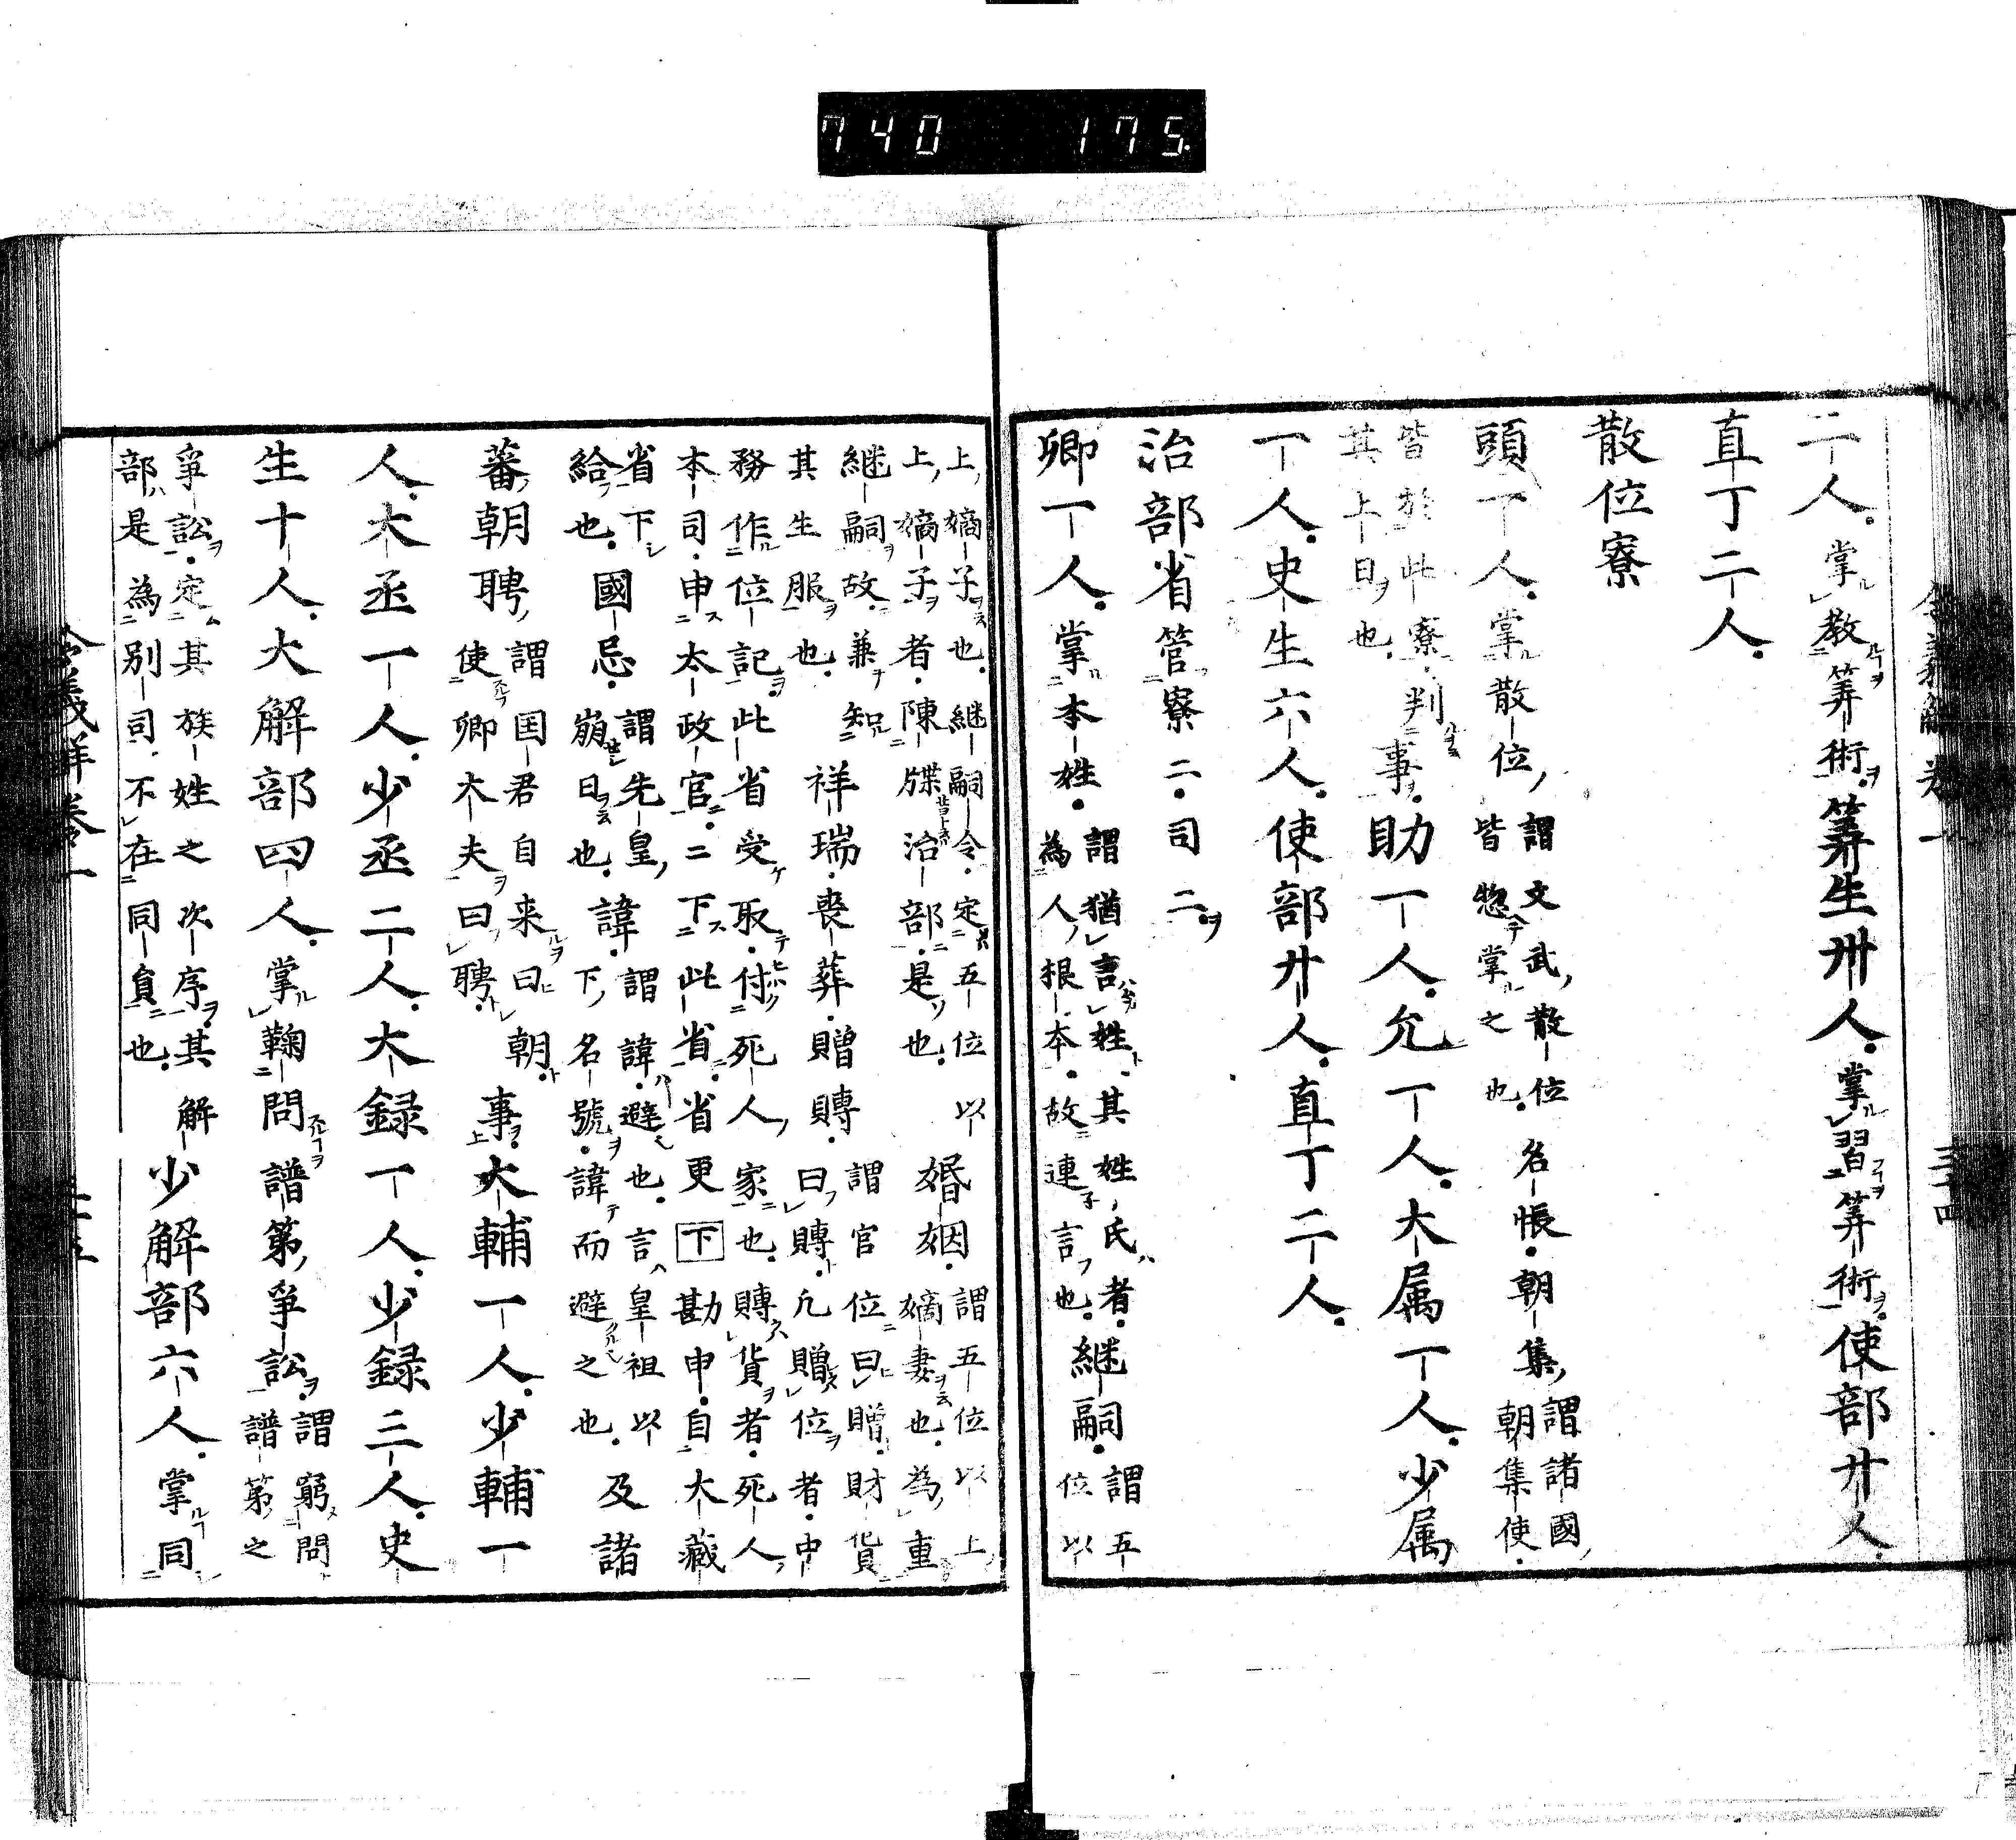 740 175
二人。掌教筭術。筭生卅人。掌習筭術。使部廿人。
直丁二人。
散位寮
頭一人。掌散位、謂文武、散位皆惣掌之也。名帳。朝集、謂諸國、朝集使。
皆於此寮。判其上日也。事。助一人。允一人。大属一人。少属
一人。史生六人。使部廿人。直丁二人。
治部省管寮二。司二。
卿一人。掌本姓。謂猶言姓。其姓、氏者。為人、根本。故連言也。継嗣。謂五位以
上、嫡子也。継嗣令。定五位以上、嫡子者。陳牒治部。是也。婚姻。謂五位以上、嫡妻也。為重
継嗣。故兼知其生服也。祥瑞。喪葬。贈賻。謂官位曰贈。財貨曰賻。凡贈位者。中
務作位記。此省受取。付死人、家也。賻貨者。死人、本司。申太政官。二下此省。省更下勘申。自大藏
省下給也。國忌。謂先皇、崩日也。諱。謂諱避也。言皇祖以下、名號。諱而避之也。及諸
蕃、朝聘、謂国君自来曰朝。使卿大夫曰聘。事。大輔一人。少輔一
人。大丞一人。少丞二人。大録一人。少録三人。史
生十人。大解部四人。掌鞠問譜第、爭訟。謂窮問譜第之
爭訟。定其族姓之次序。其解部是為別司。不在同員也。少解部六人。掌同
令義解卷一
三十四